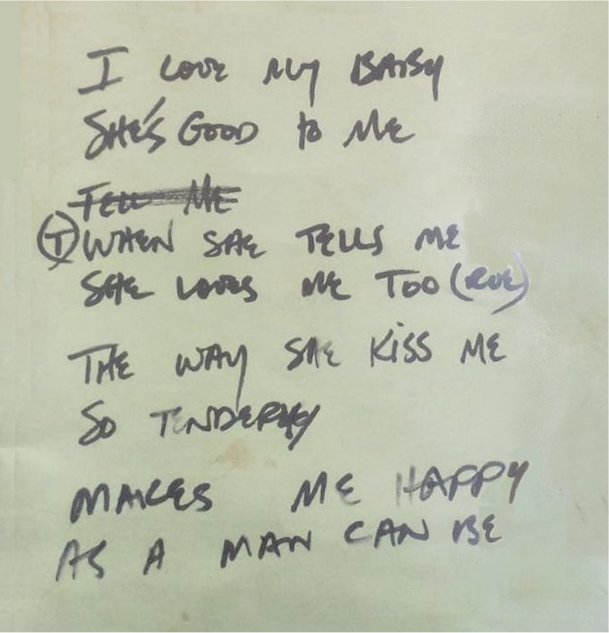 I LOVE MY BABY
SHE'S GOOD to ME
TELL ME
T WHEN SHE TELLS ME
SHE LOVES ME TOO (RUE)
THE WAY SHE KISS ME
SO TENDERLY
MAKES ME HAPPY
AS A MAN CAN BE